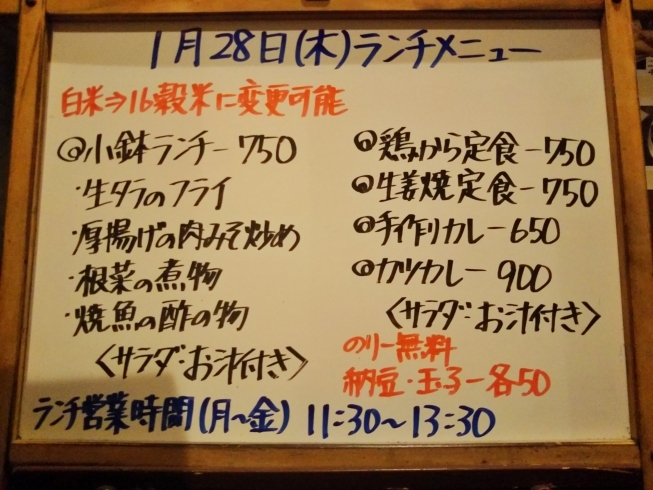 1月28日(木)ランチメニュー
白米⇒16穀米に変更可能
◎小鉢ランチー750
・生タラのフライ
・厚揚げの肉みそ炒め
・根菜の煮物
・焼魚の酢の物
〈サラダ・お汁付き〉
◎鶏から定食ー750
◎生姜焼定食ー750
◎手作りカレー650
◎カツカレー900
〈サラダ・お汁付き〉
のりー無料
納豆・玉子ー各50
ランチ営業時間(月〜金) 11:30〜13:30